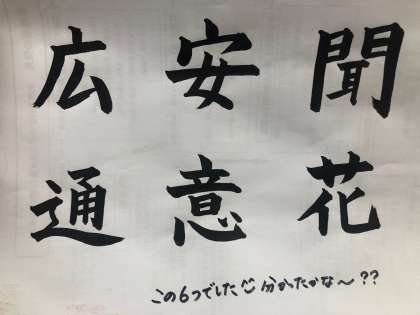 広安聞
通意花
この6つでした^^分かったかな〜??